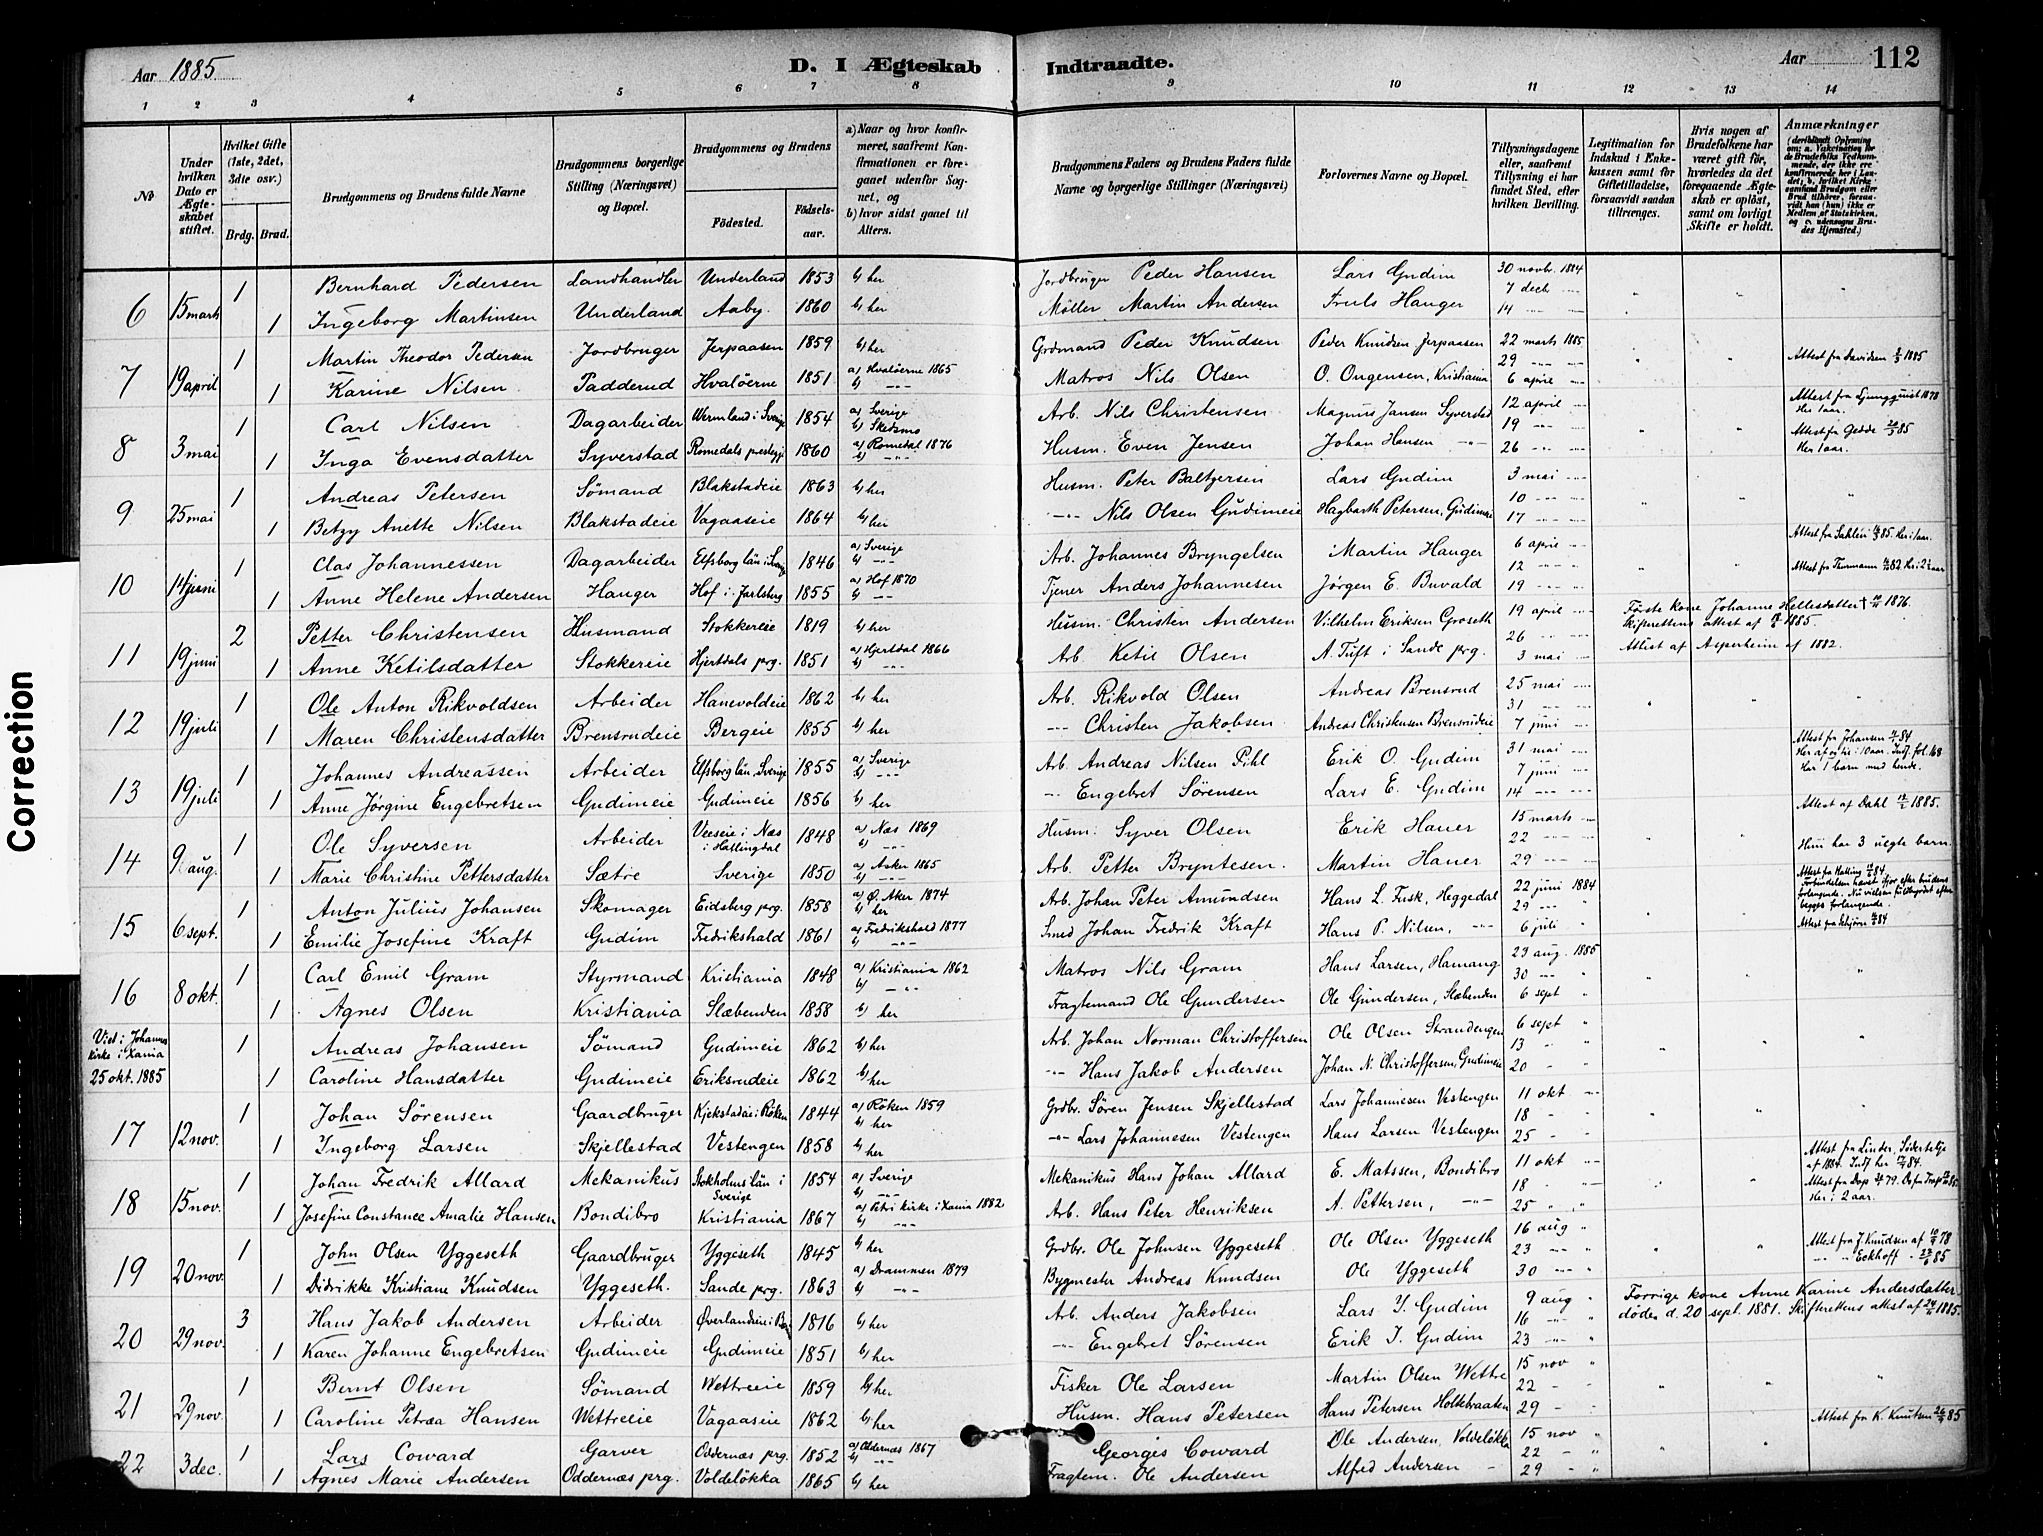 Correction
Aar 1885
D. I Ægteskab Indtraadte.
Aar 112
1 2 3 4 5 6 7 8 9 10 11 12 13 14
№
Under hvilken Dato er Ægteskabet stiftet.
Hvilket Gifte (1ste, 2det, 3die osv.)
Brdg. Brud.
Brudgommens og Brudens fulde Navne
Brudgommens borgerlige Stilling (Næringsvei) og Bopæl.
Brudgommens og Brudens
Födested.
Födselsaar.
a) Naar og hvor konfirmeret, saafremt Konfirmationen er foregaaet udenfor Sognet, og
b) hvor sidst gaaet til Alters.
Brudgommens Faders og Brudens Faders fulde Navne og borgerlige Stillinger (Næringsvei)
Forlovernes Navne og Bopæl.
Tillysningsdagene eller, saafremt Tillysning ei har fundet Sted, efter hvilken Bevilling.
Legitimation for Indskud i Enkekassen samt for Giftetilladelse, forsaavidt saadan tiltrænges.
Hvis nogen af Brudefolkene har været gift før, hvorledes da det foregaaende Ægteskab er opløst, samt om lovligt Skifte er holdt.
Anmærkninger (deriblandt Oplysning om: a. Vaccination for de Brudefolks Vedkommende, der ikke ere konfirmerede her i Landet; b. hvilket Kirkesamfund Brudgom eller Brud tilhører, forsaavidt han (hun) ikke er Medlem af Statskirken, og c. udensogns Brudes Hjemsted.)
6 15 marts 1 Bernhard Pedersen Landhandler Underland 1853 b) her Jordbruger Peder Hansen Lars Gudim 30 novbr. 1884
7 decb
1 Ingeborg Martinsen Underland Aaby 1860 b) her Møller Martin Andersen Truls Hauger 14
7 19 april 1 Martin Theodor Pedersen Jordbruger Jerpaasen 1859 b) her Grdmand Peder Knudsen Peder Knudsen Jerpaasen 22 marts 1885
29
1 Karine Nilsen Padderud Hvaløerne 1851 a) Hvaløerne 1865 Matros Nils Olsen O. Ongensen, Kristiania 6 april Attest fra Davidsen 1885
8 3 mai 1 Carl Nilsen Dagarbeider Wermland i Sverige 1854 a) Sverige b) Skedsmo Arb. Nils Christensen Magnus Jansen Syverstad 12 april Attest fra Ljungquist 1878 Her 1 aar.
19
1 Inga Evensdatter Syverstad Romedals prestegj. 1860 a) Romedal 1876 Husm. Even Jensen Johan Hansen 26 Attest fra Gedde 85 Her 1 aar.
9 25 mai 1 Andreas Petersen Sømand Blakstadeie 1863 b) her Husm. Peter Baltzersen Lars Gudim 3 mai
10
1 Betzy Anette Nilsen Blakstadeie Vagaaseie 1864 b) her Nils Olsen Gudimeie Hagbarth Petersen, Gudimeie 17
10 14 juni 1 Clas Johannessen Dagarbeider Elfsborg län i Sverige 1846 a) Sverige Arb. Johannes Bryngelsen Martin Hauger 6 april Attest fra Sahlén 85. Her 1 aar.
12
1 Anne Helene Andersen Hauger Hof i Jarlsberg 1855 a) Hof 1870 Tjener Anders Johannesen Jørgen E. Buvald 19 Attest fra Thurmann 82 Her 2 aar
11 19 juni 2 Petter Christensen Husmand Stokkereie 1819 b) her Husm. Christen Andersen Vilhelm Eriksen Groseth 19 april Første kone Johanne Hellesdatter † 1876.
26 Skifterettens attest af 1885
1 Anne Ketilsdatter Stokkereie Hjertdals prg. 1851 a) Hjertdal 1866 Arb. Ketil Olsen A. Tuft i Sande prg. 3 mai Attest af Asperheim af 1882.
12 19 juli 1 Ole Anton Rikvoldsen Arbeider Hanevoldeie 1862 b) her Arb. Rikvold Olsen Andreas Brensrud 25 mai
31
1 Maren Christensdatter Brensrudeie Bergeie 1855 b) her Christen Jakobsen Andreas Christensen Brensrudeie 7 juni
13 19 juli 1 Johannes Andreassen Arbeider Elfsborg län, Sverige 1855 a) Sverige Arb. Andreas Nilsen Pihl Erik O. Gudim 31 mai Attest fra Johansen 84
7 juni Her 1 barn med hende.
1 Anne Jørgine Engebretsen Gudimeie Gudimeie 1856 b) her Engebret Sørensen Lars E. Gudim 14
14 9. aug. 1 Ole Syversen Arbeider Veeseie i Næs i Hallingdal 1848 a) Næs 1869 Husm. Syver Olsen Erik Hauer 15 marts Attest af Dahl 1885.
22
1 Marie Christine Pettersdatter Sætre Sverige 1850 a) Asker 1865 Arb. Petter Bryntesen. Martin Hauer 29 Hun har 3 uegte barn
15 6 sept. 1 Anton Julius Johansen Skomager Eidsberg prg. 1858 a) Ø. Aker 1874 b) her Arb. Johan Peter Amundsen Hans L. Fusk, Heggedal 22 juni 1884 Attest fra Halling 84. Forbindelsen hævet ifjor efter brudens forlangende. Nu vielsen fuldbyrdet efter begges forlangende.
29
1 Emilie Josefine Kraft Gudim Fredrikshald 1861 a) Fredrikshald 1877 Smed Johan Fredrik Kraft Hans P. Nilsen, 6 juli
16 8 okt. 1 Carl Emil Gram Styrmand Kristiania 1848 a) Kristiania 1862 Matros Nils Gram Hans Larsen, Hamang 23 aug. 1885
30
1 Agnes Olsen Kristiania Slæbenden 1858 b) her Fragtemand Ole Gundersen Ole Gundersen, Slæbenden 6 sept
Viet i Johannes kirke i Xania 25 okt. 1885 1 Andreas Johansen Sømand Gudimeie 1862 b) her Arb. Johan Norman Christoffersen Ole Olsen Strandengen 6 sept
13
1 Caroline Hansdatter Gudimeie Eriksrudeie 1862 b) her Hans Jakob Andersen Johan N. Christoffersen, Gudimeie 20
17 12 nov. 1 Johan Sørensen Gaardbruger Kjekstadeie i Røken 1844 a) Røken 1859 b) her Grdbr. Søren Jensen Skjellestad Lars Johannesen Vestengen 11 okt
18
1 Ingeborg Larsen Skjellestad Vestengen 1858 b) her Lars Johannesen Vestengen Hans Larsen Vestengen 25
18 15 nov. 1 Johan Fredrik Allard Mekanikus Stokholms län i Sverige 1854 a) Sverige Mekanikus Hans Johan Allard E. Matssen, Bondibro 11 okt Attest fra Linder, Södertelje af 1884.
18
1 Josefine Constance Amalie Hansen Bondibro Kristiania 1867 a) Petri kirke i Xania 1882 Arb. Hans Peter Henriksen A. Pettersen, 25 Her i 2 aar.
19 20 nov. 1 John Olsen Yggeseth Gaardbruger Yggeseth 1845 b) her Grdbr. Ole Johnsen Yggeseth Ole Olsen Yggeseth 16 aug Attest fra J Knudsen af 78
23 Eckhoff 85
1 Didrikke Kristiane Knudsen Yggeseth. Sande prg. 1863 a) Drammen 1879 Bygmester Andreas Knudsen Ole Yggeseth 30
20 29 nov. 3 Hans Jakob Andersen Arbeider Øverlandeie i 1816 b) her Arb. Anders Jakobsen Lars J. Gudim 9 aug Forrige kone Anne Karine Andersdatter
16 døde d. 20 sept. 1881. Skifterettens attest af 1885.
1 Karen Johanne Engebretsen Gudimeie Gudimeie 1851 b) her Engebret Sørensen Erik J. Gudim 23
21 29 nov. 1 Bernt Olsen Sømand Wettreeie 1859 b) her Fisker Ole Larsen Martin Olsen Wettre 15 nov
22
1 Caroline Petræa Hansen Wettreeie Vagaaseie 1862 b) her Husm. Hans Petersen Hans Petersen Holtebraaten 29
22 3 dec. 1 Lars Coward Garver Oddernæs prg. 1852 a) Oddernæs 1867 Georgis Coward Ole Andersen, Voldeløkka 15 nov Attest fra K. Knutsen 85
22
1 Agnes Marie Andersen Oddernæs prg. Voldeløkka 1865 b) her Fragtem. Ole Andersen Alfred Andersen 29